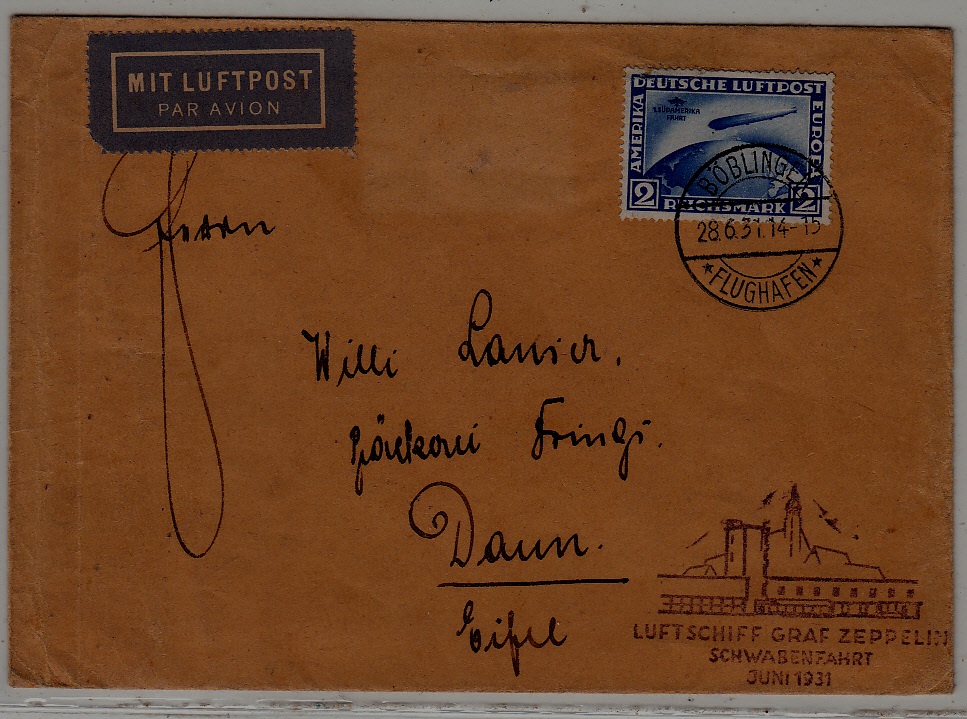 MIT LUFTPOST
PAR AVION
DEUTSCHE LUFTPOST
AMERIKA
EUROPA
1.SÜDAMERIKA
FAHRT
2 2
REICHSMARK
BÖBLINGEN
28.6.31.14-15
★FLUGHAFEN★
Herrn
Willi Lanser.
Bäckerei Frings.
Daun.
Eifel
LUFTSCHIFF GRAF ZEPPELIN
SCHWABENFAHRT
JUNI 1931